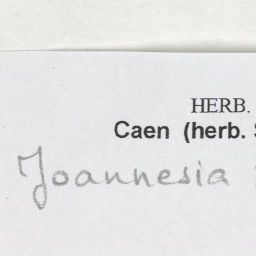 HERB.
Caen (herb.
Joannesia